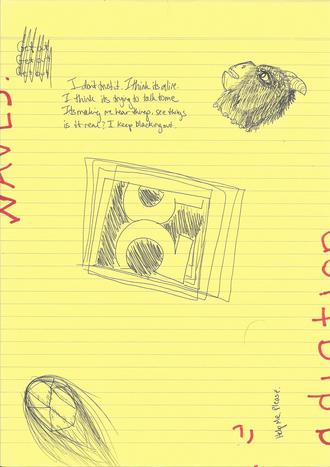 Get out
Get out
Get out
I dont trust it. I think its alive.
I think its trying to talk to me.
Its making me hear things, see things
is it real? I keep blacking out.
WAVES.
Help Me Please.